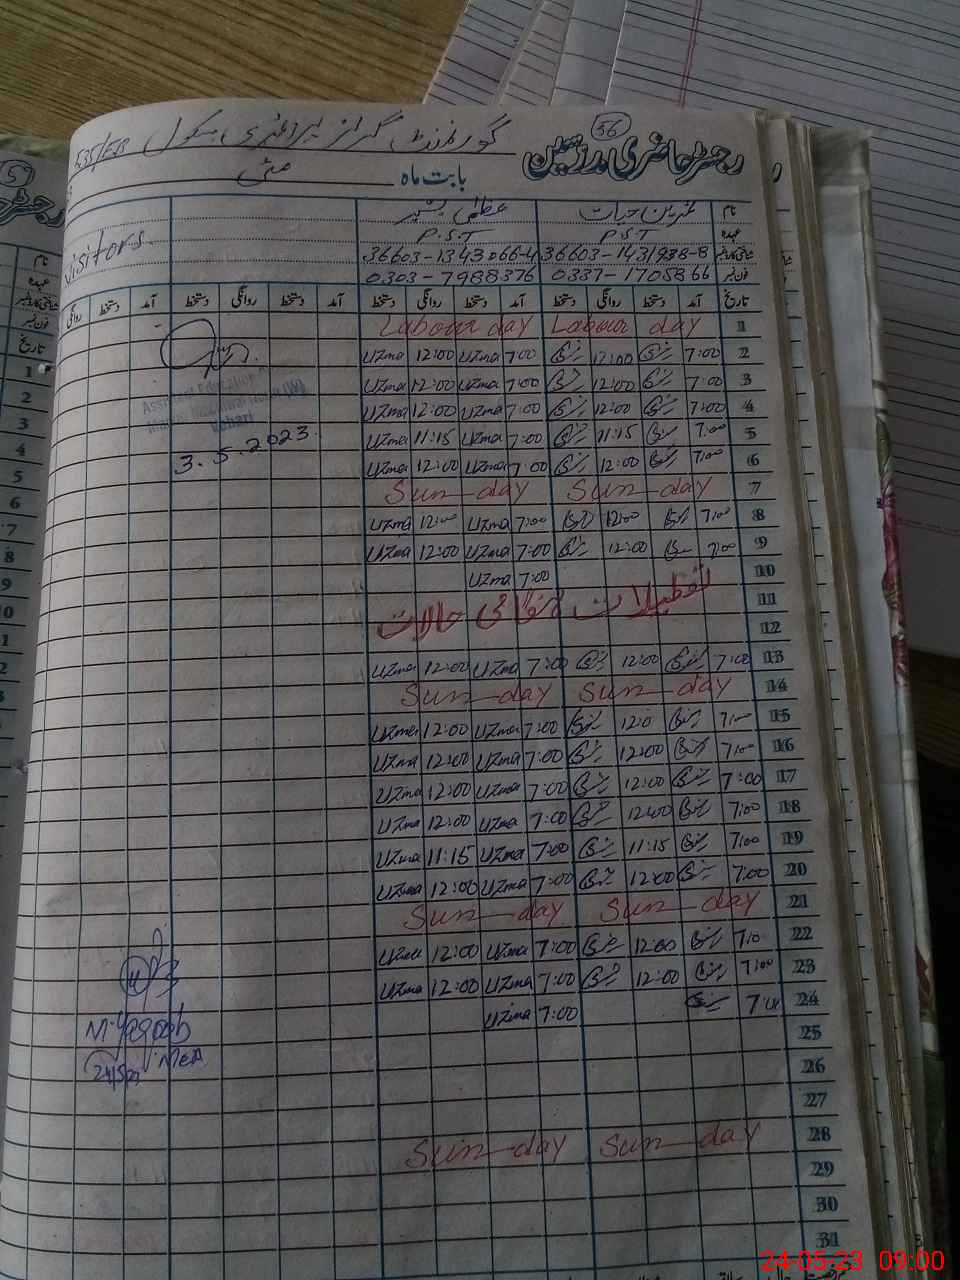 56
رجسٹر حاضری مدرسین
گورنمنٹ گرلز پرائمری سکول 535/EB
بابت ماہ مئی
نام حیات عظمیٰ بشیر
عہدہ P.S.T P.S.T Visitors
شناختی کارڈ نمبر 36603-1431938-8 36603-1343066-4
فون نمبر 0337-1705866 0303-7988376
تاریخ آمد دستخط روانگی دستخط آمد دستخط روانگی دستخط آمد دستخط روانگی دستخط آمد دستخط روانگی
1 Labour day Labour day
2 7:00 12:00 7:00 Uzma 12:00 Uzma
3 7:00 12:00 7:00 Uzma 12:00 Uzma
4 7:00 12:00 7:00 Uzma 12:00 Uzma
5 7:00 11:15 7:00 Uzma 11:15 Uzma
6 7:00 12:00 7:00 Uzma 12:00 Uzma
3.5.2023
7 Sunday Sunday
8 7:00 12:00 7:00 Uzma 12:00 Uzma
9 7:00 12:00 7:00 Uzma 12:00 Uzma
10 7:00 Uzma
11 تعطیلات مقامی حالات
12
13 7:00 12:00 7:00 Uzma 12:00 Uzma
14 Sunday Sunday
15 7:00 12:0 7:00 Uzma 12:00 Uzma
16 7:00 12:00 7:00 Uzma 12:00 Uzma
17 7:00 12:00 7:00 Uzma 12:00 Uzma
18 7:00 12:00 7:00 Uzma 12:00 Uzma
19 7:00 11:15 7:00 Uzma 11:15 Uzma
20 7:00 12:00 7:00 Uzma 12:00 Uzma
21 Sunday Sunday
22 7:00 12:00 7:00 Uzma 12:00 Uzma
23 7:00 12:00 7:00 Uzma 12:00 Uzma
24 7:00 7:00 Uzma
M. Yaqoob
MEA
24/5/23
25
26
27
28 Sunday Sunday
29
30
31
24-05-23 09:00